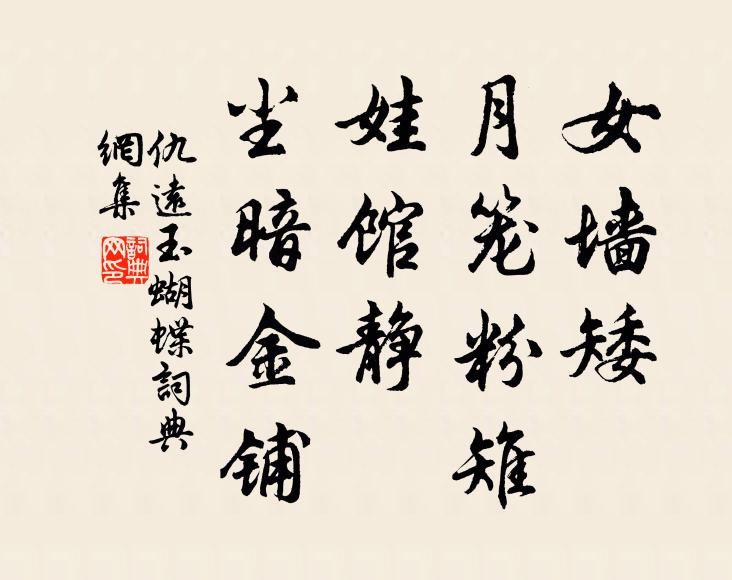 女墙矮
月笼粉雉
娃馆静
尘暗金铺
仇遠玉蝴蝶詞典
網集
詞典
网印